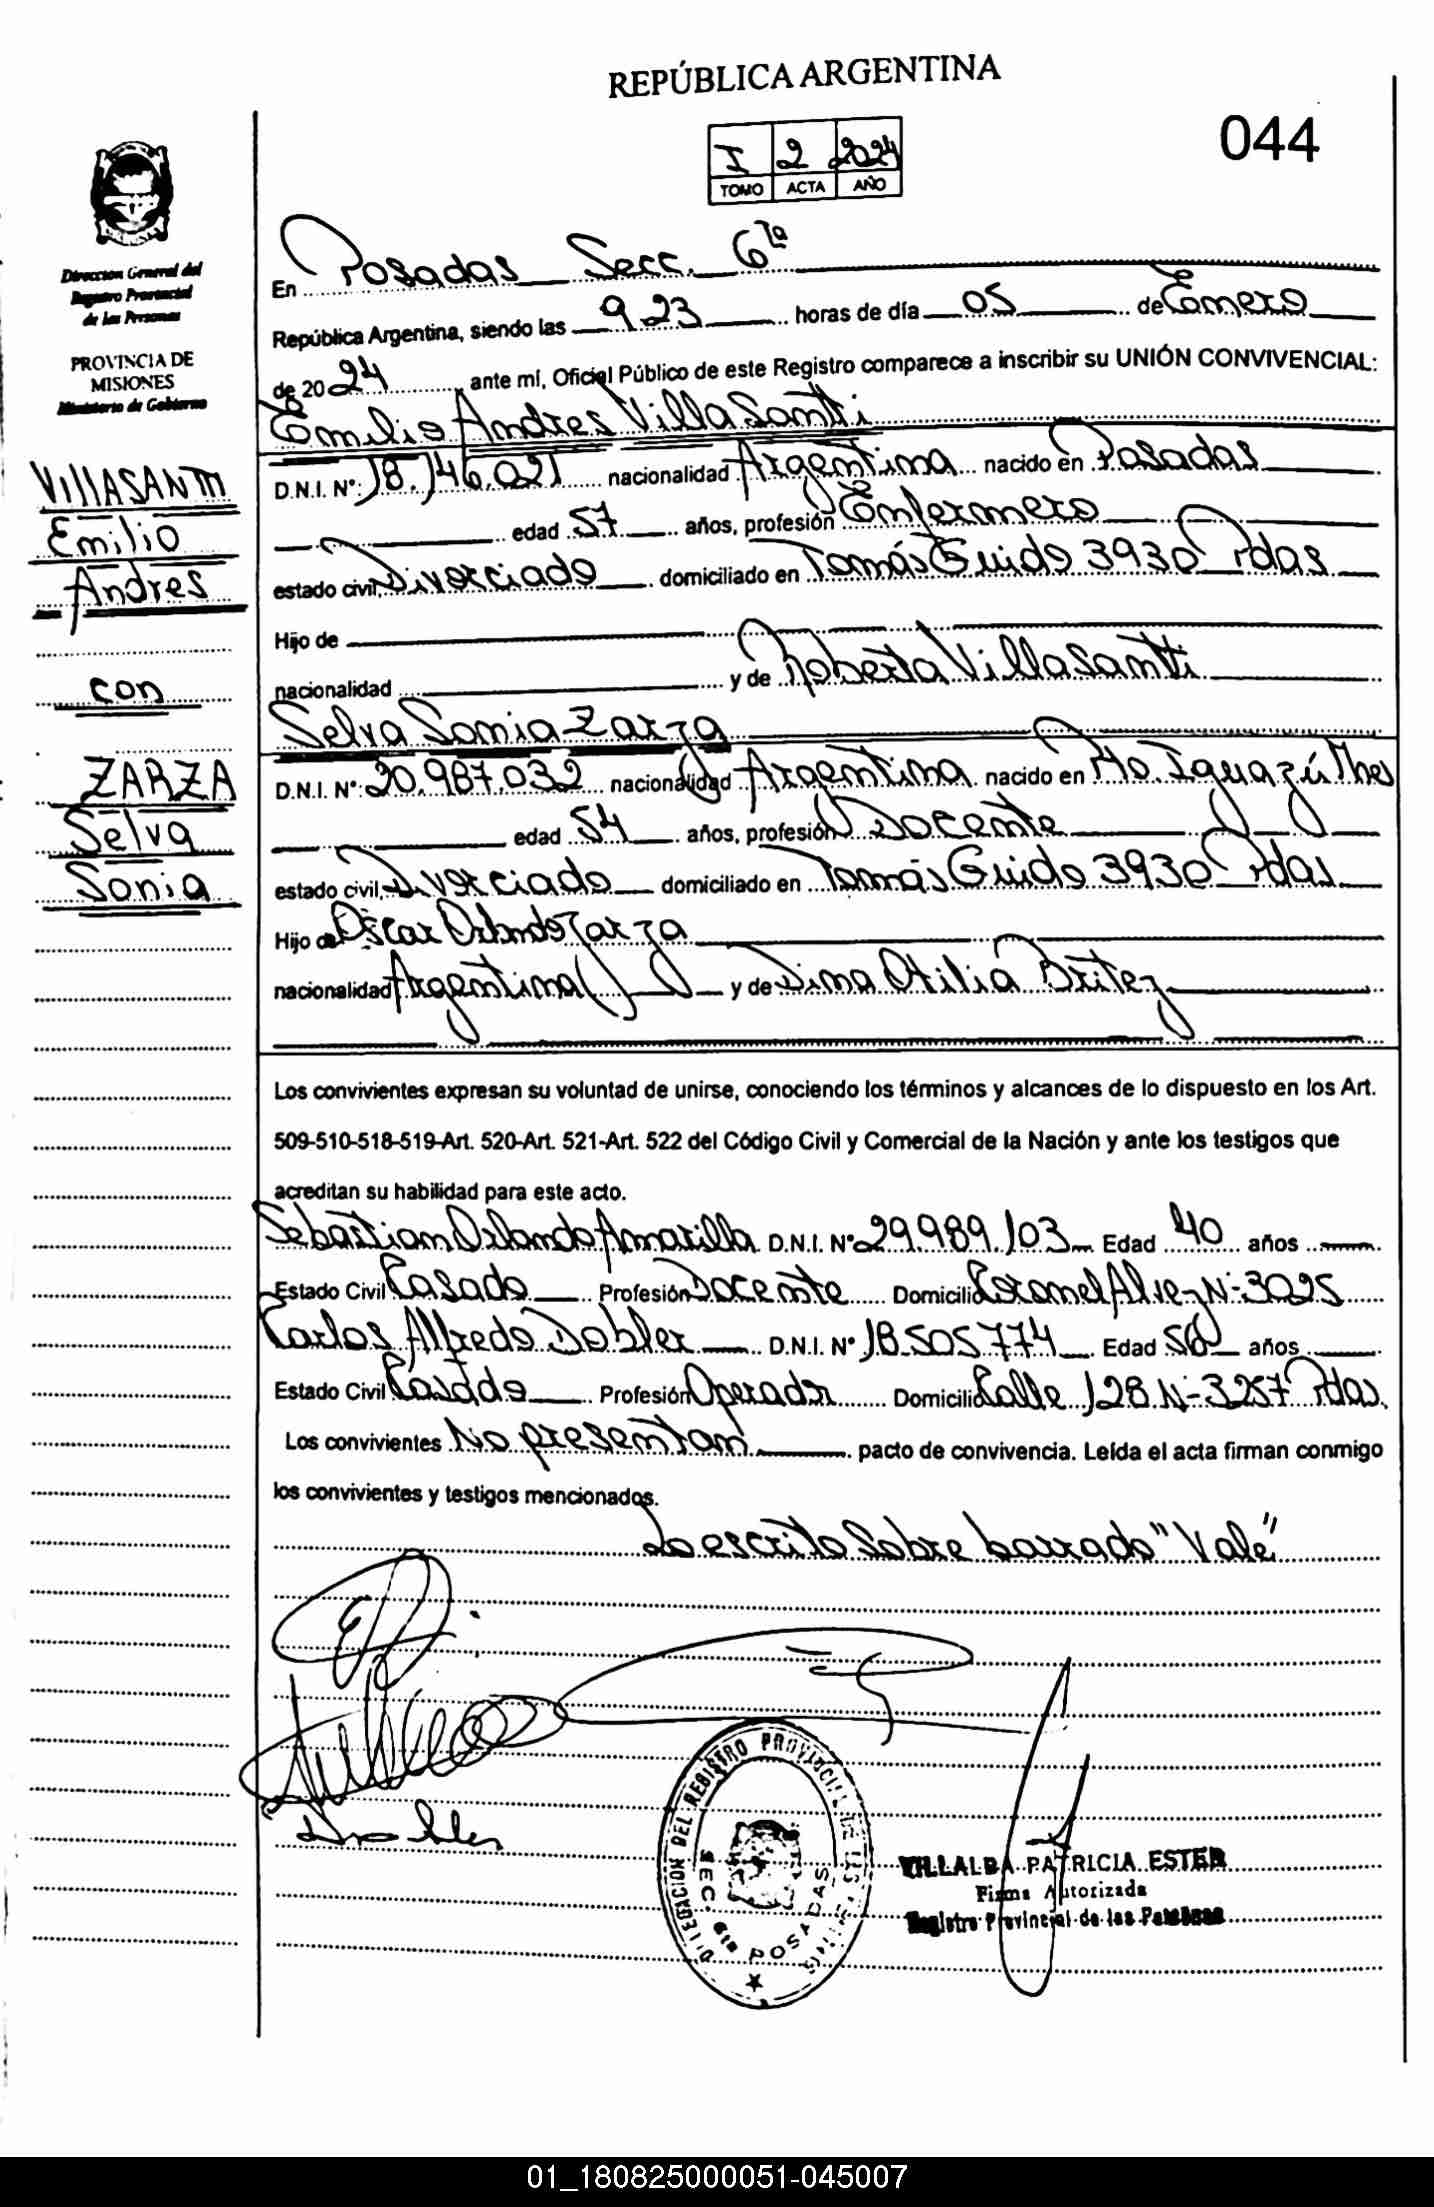 REPÚBLICA ARGENTINA
044
I 2 2024
TOMO ACTA AÑO
Direccion General del
Registro Provincial
de las Personas
PROVINCIA DE
MISIONES
Ministerio de Gobierno
VIllASANTTI
Emilio
Andres
con
ZARZA
Selva
Sonia
En Posadas Secc. 6ta
República Argentina, siendo las 9 23 horas de día 05 de Enero
de 2024, ante mí, Oficial Público de este Registro comparece a inscribir su UNIÓN CONVIVENCIAL:
Emilio Andres VillaSantti
D.N.I. N°: 18.746.021 nacionalidad Argentina nacido en Posadas
edad 57 años, profesión Enfermero
estado civil, Divorciado domiciliado en Tomás Guido 3930 Pdas
Hijo de
nacionalidad y de Roberta VillaSantti
Selva Sonia Zarza
D.N.I. N°: 20.987.032 nacionalidad Argentina nacido en Pto. Iguazú Mnes
edad 54 años, profesión Docente
estado civil, Divorciado domiciliado en Tomás Guido 3930 Pdas
Hijo de Oscar Orlando Zarza
nacionalidad Argentina y de Dina Otilia Britez
Los convivientes expresan su voluntad de unirse, conociendo los términos y alcances de lo dispuesto en los Art.
509-510-518-519-Art. 520-Art. 521-Art. 522 del Código Civil y Comercial de la Nación y ante los testigos que
acreditan su habilidad para este acto.
Sebastian Orlando Amarilla D.N.I. N° 29.989.103 Edad 40 años
Estado Civil Casado Profesión Docente Domicilio Coronel Alvez N-3025
Carlos Alfredo Dobler D.N.I. N° 18.505.774 Edad 56 años
Estado Civil Casado Profesión Operador Domicilio Calle 128 N-3257 Pdas.
Los convivientes No presentan pacto de convivencia. Leída el acta firman conmigo
los convivientes y testigos mencionados.
Lo escrito Sobre borrado "Vale"
DELEGACION DEL REGISTRO PROVINCIAL DE
SEC. 6ta POSADAS
VILLALBA PATRICIA ESTER
Firma Autorizada
Registro Provincial de las Personas
01_180825000051-045007